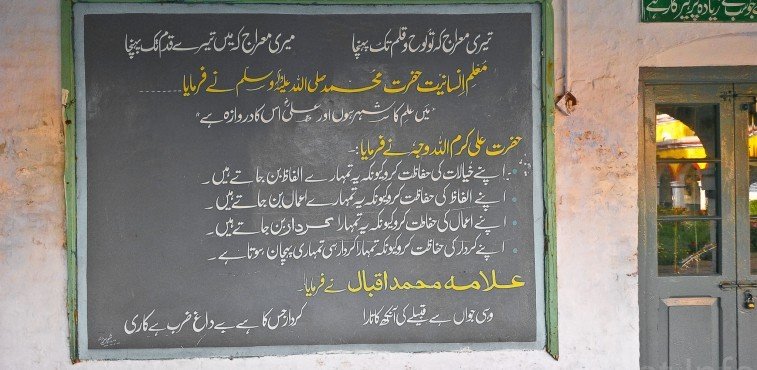 تیری معراج کہ تو لوح و قلم تک پہنچا میری معراج کہ میں تیرے قدم تک پہنچا
معلم انسانیت حضرت محمد صلی اللہ علیہ وسلم نے فرمایا.........
"میں علم کا شہر ہوں اور علیؓ اس کا دروازہ ہے"
حضرت علی کرم اللہ وجہہ نے فرمایا:-
اپنے خیالات کی حفاظت کرو کیونکہ یہ تمہارے الفاظ بن جاتے ہیں۔
اپنے الفاظ کی حفاظت کرو کیونکہ یہ تمہارے اعمال بن جاتے ہیں۔
اپنے اعمال کی حفاظت کرو کیونکہ یہ تمہارا کردار بن جاتے ہیں۔
اپنے کردار کی حفاظت کرو کیونکہ تمہارا کردار ہی تمہاری پہچان ہوتا ہے۔
علامہ محمد اقبال نے فرمایا۔
وہی جواں ہے قبیلے کی آنکھ کا تارا کردار جس کا ہے بے داغ ضرب ہے کاری
زیادہ پرہیزگار ہے